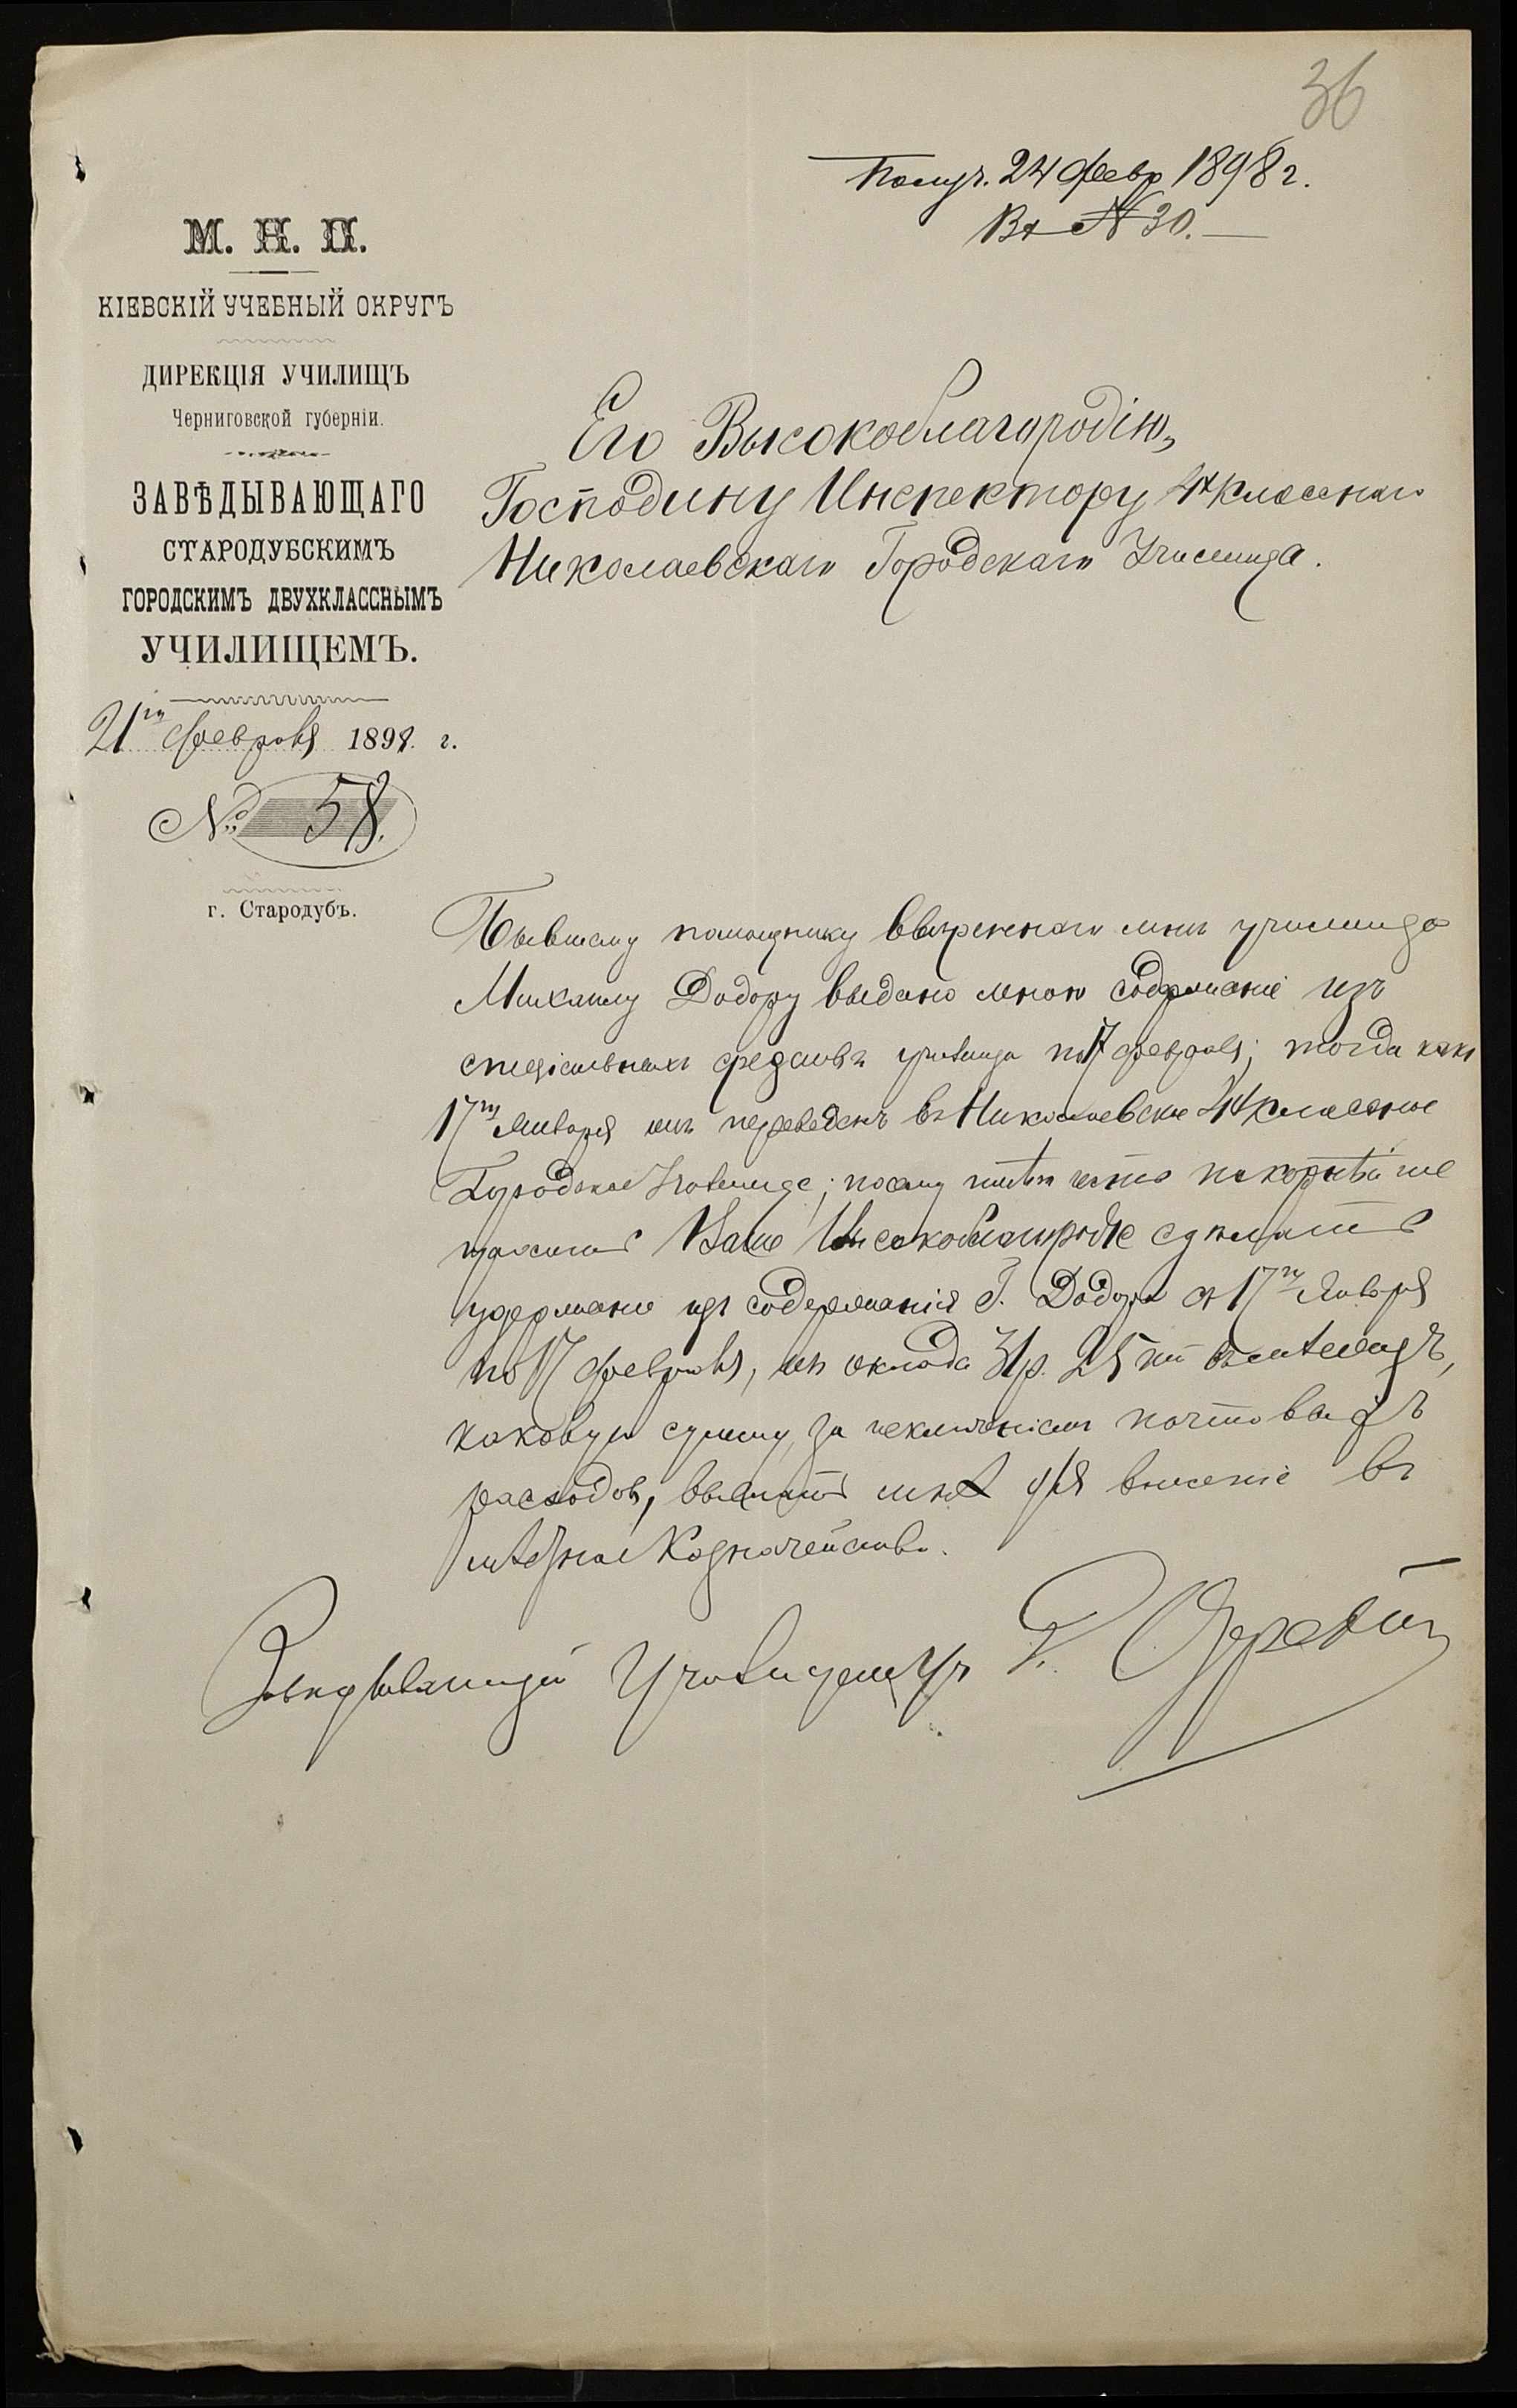 36
Получ. 24 Февр 1898 г.
Вх № 30.
М. Н. П.
КІЕВСКІЙ УЧЕБНЫЙ ОКРУГЪ
ДИРЕКЦІЯ УЧИЛИЩЪ
Черниговской губерніи.
ЗАВѢДЫВАЮЩАГО
СТАРОДУБСКИМЪ
ГОРОДСКИМЪ ДВУХКЛАССНЫМЪ
УЧИЛИЩЕМЪ.
21го Февраля 1898. г.
№ 58.
г. Стародубъ.
Его Высокоблагородію,
Господину Инспектору 4х класснаго
Николаевскаго Городскаго Училища.
Бывшему помощнику ввѣреннаго мнѣ училища
Михаилу Додору выдано мною содержаніе изъ
спеціальныхъ средствъ училища по 17 февраля; тогда какъ
17го Января онъ переведенъ въ Николаевское 4х классное
Городское Училище; посему имѣю честь покорнѣйше
просить Ваше Высокоблагородіе сдѣлать
удержаніе изъ содержанія Г. Додора съ 17го Января
по 17 февраля, изъ оклада 31 р. 25 к. въ мѣсяцъ,
каковую сумму, за исключеніемъ почтовыхъ
расходовъ, выслать мнѣ для внесенія въ
мѣстное Казначейство.
Завѣдывающій Училищемъ